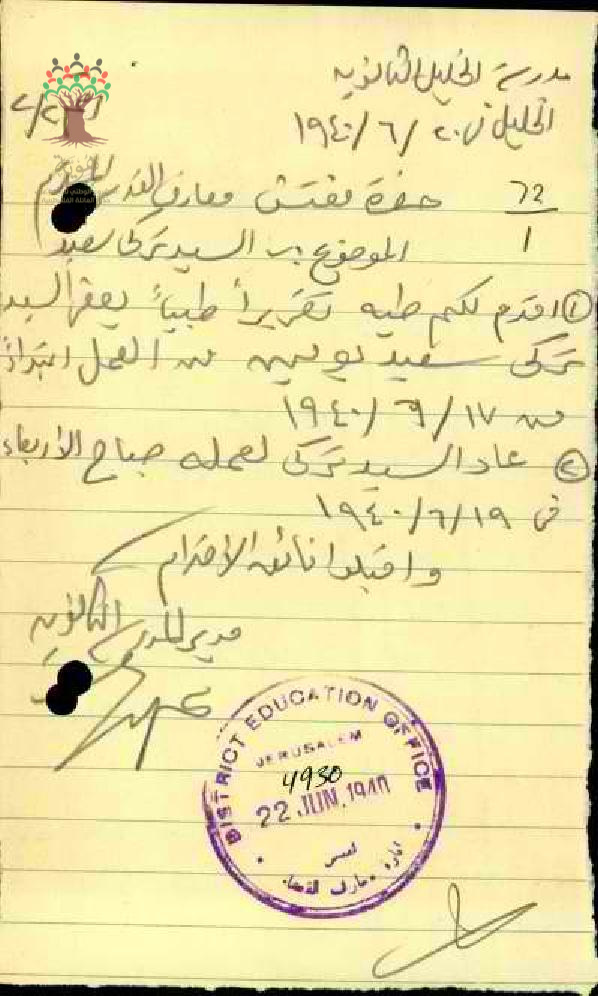 مدرسة الخليل الثانوية
الخليل في ٢٠/٦/١٩٤٠
٧٢/١
حضرة مفتش معارف القدس المحترم
الموضوع :- السيد تركي سعيد
① اقدم لكم طيه تقريراً طبياً يعفي السيد
تركي سعيد يومين من العمل ابتداءً
من ١٧/٦/١٩٤٠
② عاد السيد تركي لعمله صباح الأربعاء
في ١٩/٦/١٩٤٠
واقبلوا فائق الاحترام
مدير المدرسة الثانوية
DISTRICT EDUCATION OFFICE
JERUSALEM
4930
22 JUN. 1940
القدس
ادارة معارف القضاء